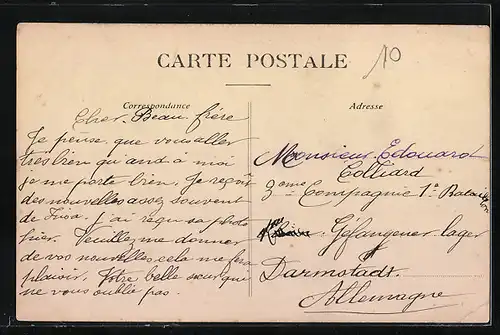 10
CARTE POSTALE
Correspondance
Adresse
Cher Beau frère
Je pense que vous aller
tres bien quand a moi
je me porte bien. Je reçois
des nouvelles assez souvent
de J'ai reçu sa photo
hier. Veuillez me donner
de vos nouvelles cela me fera
plaisir. Votre belle sœur qui
ne vous oublie pas.
Monsieur Edouard
Colliard
3eme Compagnie 1e Bataillon
Gefangener lager
Darmstadt
Allemagne